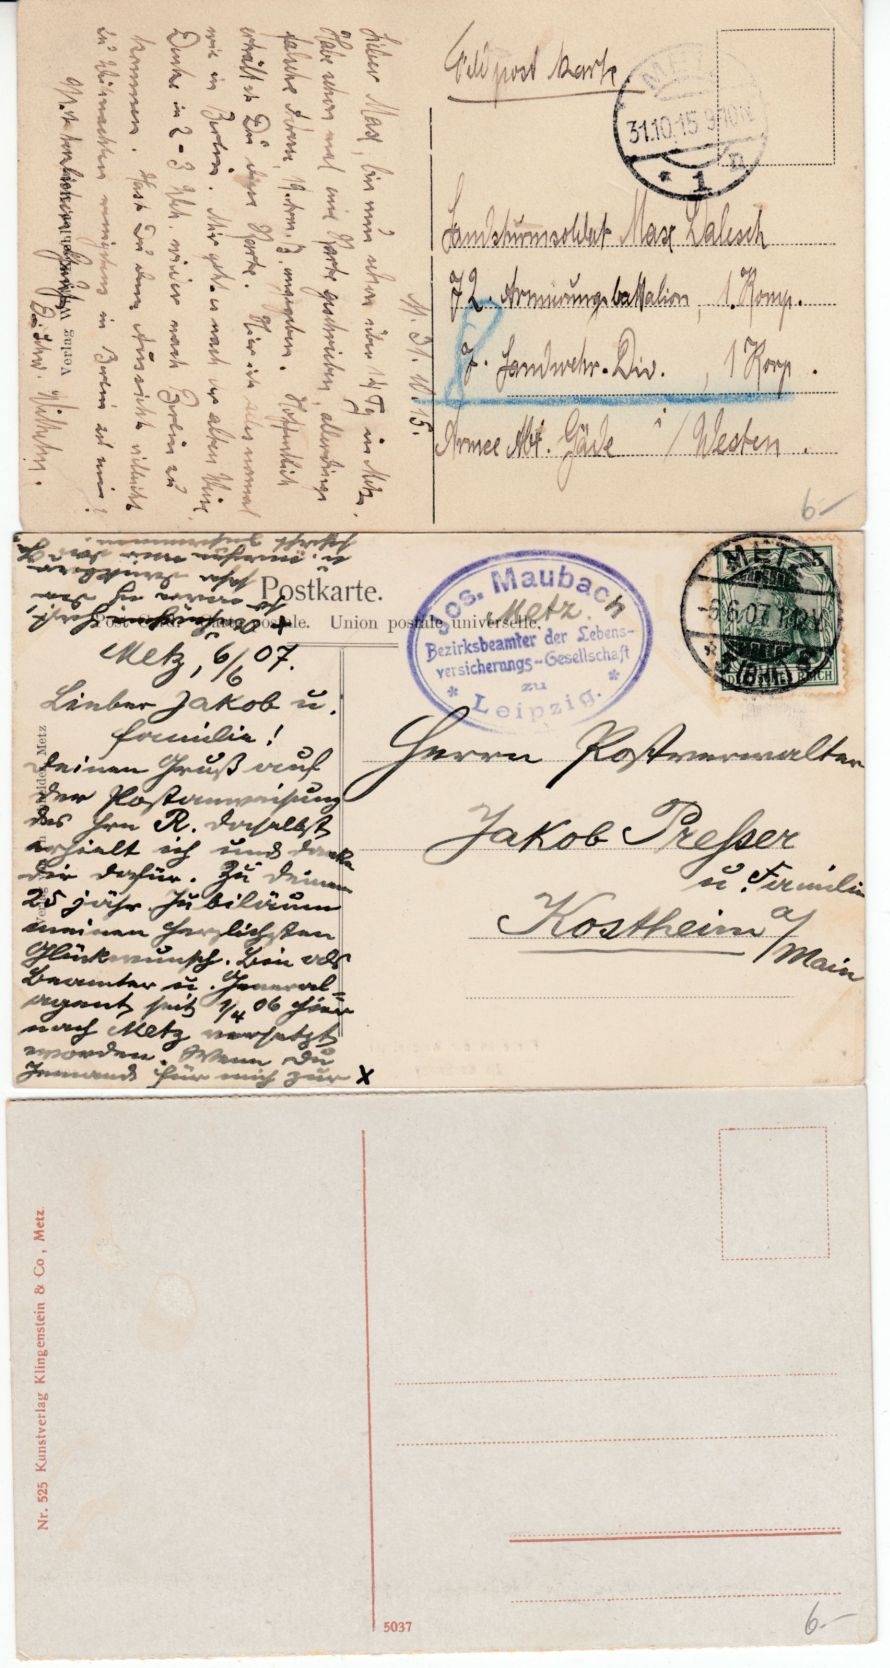 Feldpostkarte
METZ
31.10.15 9-10N
* 1 n
Landsturmsoldat Max Dalesch
72. Armierungsbattalion, 1. Komp.
7. Landwehr-Div. , 1 Korp.
Armee Abt. Gäde i/Westen.
M. 31.10.15.
Lieber Max, bin nun schon über 14 Tg in Metz.
Habe schon mal eine Karte geschrieben, allerdings
falsche Adress, 19. Arm. B. angegeben. Hoffentlich
erhälst Du den Karte. Hier ich
wie in Berlin. Mir geht es nach der alten Weise.
Denke in 2-3 Wch. wieder nach Berlin zu
kommen. Hast Du denn Aussicht vielleicht
zu Weihnachten wenigstens in Berlin zu sein?
Mit herzlichem Gruß
Wilhelm.
Verlag W.
6-
Postkarte.
Carte postale. Union postale universelle.
Jos. Maubach
Metz.
Bezirksbeamter der Lebens-
versicherungs-Gesellschaft
zu
* Leipzig. *
METZ
6.6.07
*1(BHF)
5
DEUTSCHES REICH
Metz, 6/6 07.
Lieber Jakob u.
Familie!
Deinen Gruß auf
der Postanweisung
des Hrn R. daselbst
erhielt ich und danke
dir dafür. Zu deinem
25 jähr. Jubiläum
meinen herzlichsten
Glückwunsch. Bin als
Beamter u. General-
agent seit 1/4 06 hier
nach Metz versetzt
worden. Wenn Du
Jemand für mich zur x
Herrn Postverwalter
Jakob Presser
u. Familie
Kostheim a/Main
Metz
Nr. 525 Kunstverlag Klingenstein & Co, Metz
5037
6-